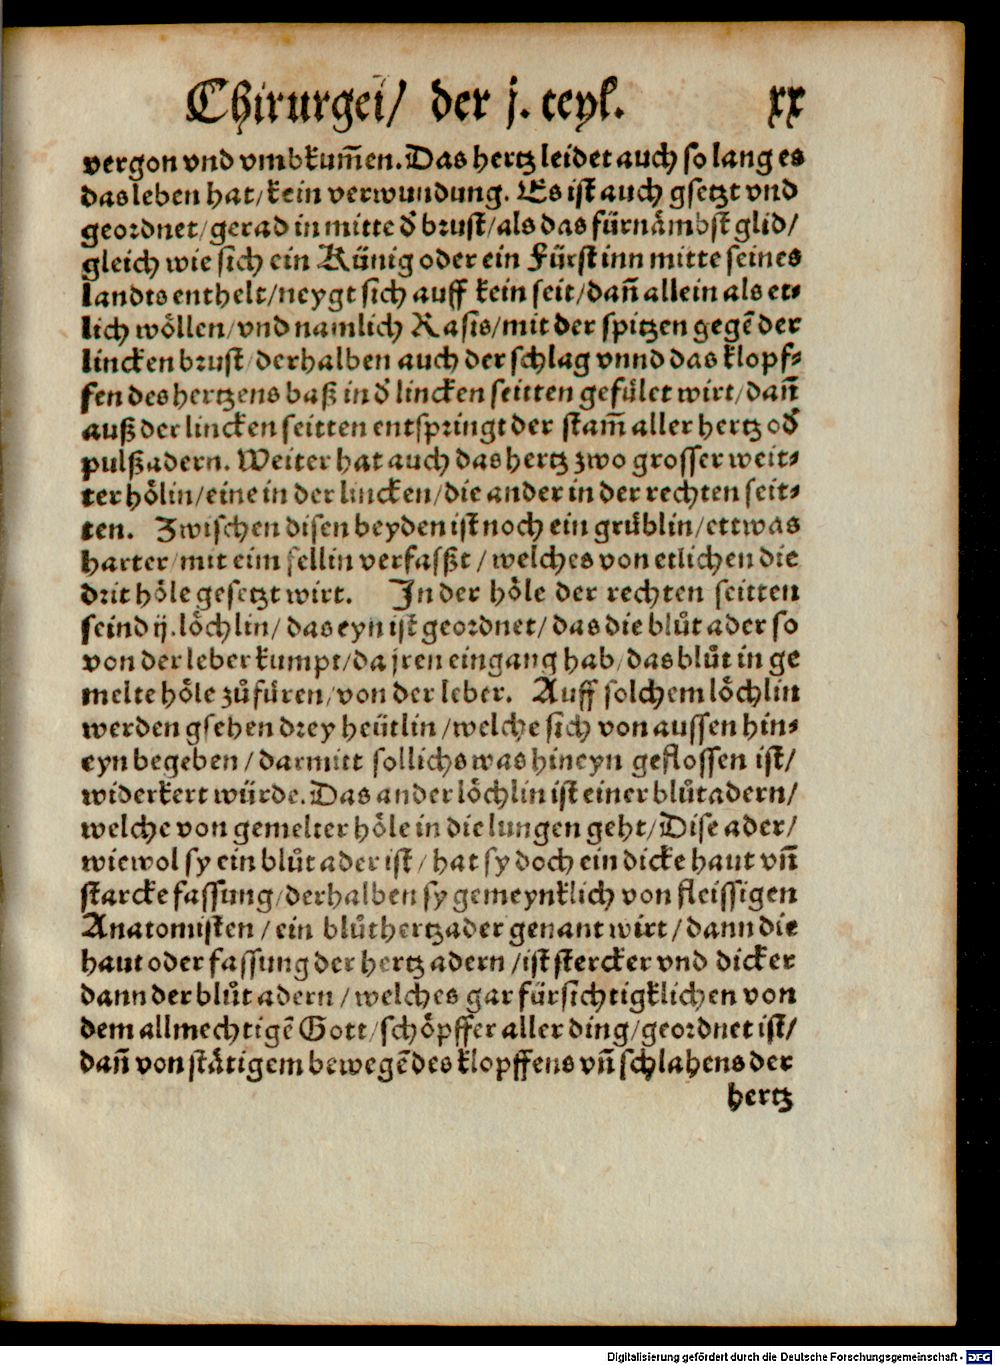 Chirurgei/ der j. teyl. xx
vergon vnd vmbkum̃en. Das hertz leidet auch so lang es
das leben hat/ kein verwundung. Es ist auch gsetzt vnd
geordnet/ gerad in mitte d̕ brust/ als das fürnåmbst glid/
gleich wie sich ein Künig oder ein Fürst inn mitte seines
landts enthelt/ neygt sich auff kein seit/ dañ allein als et⸗
lich wôllen/ vnd namlich Rasis/ mit der spitzen gegẽ der
lincken brust/ derhalben auch der schlag vnnd das klopf⸗
fen des hertzens baß in d̕ lincken seitten gefület wirt/ dañ
auß der lincken seitten entspringt der stam̃ aller hertz od̕
pulßadern. Weiter hat auch das hertz zwo grosser weit⸗
ter hôlin/ eine in der lincken/ die ander in der rechten seit⸗
ten. Zwischen disen beyden ist noch ein grüblin/ ettwas
harter mit eim fellin verfasßt / welches von etlichen die
drit hôle gesetzt wirt. In der hôle der rechten seitten
seind ij. lôchlin/ das eyn ist geordnet/ das die blůt ader so
von der leber kumpt/ da jren eingang hab/ das blůt in ge
melte hôle zů füren/ von der leber. Auff solchem lôchlin
werden gsehen drey heütlin / welche sich von aussen hin⸗
eyn begeben / darmitt sollichs was hineyn geflossen ist/
widerkert würde. Das ander lôchlin ist einer blůtadern/
welche von gemelter hôle in die lungen geht/ Dise ader/
wiewol sy ein blůt ader ist / hat sy doch ein dicke haut vñ
starcke fassung/ derhalben sy gemeynklich von fleissigen
Anatomisten / ein blůthertzader genant wirt / dann die
haut oder fassung der hertz adern / ist stercker vnd dicker
dann der blůt adern / welches gar fürsichtigklichen von
dem allmechtigẽ Gott/ schôpffer aller ding/ geordnet ist/
dañ von ståtigem bewegẽ des klopffens vñ schlahens der
hertz
Digitalisierung gefördert durch die Deutsche Forschungsgemeinschaft - DFG